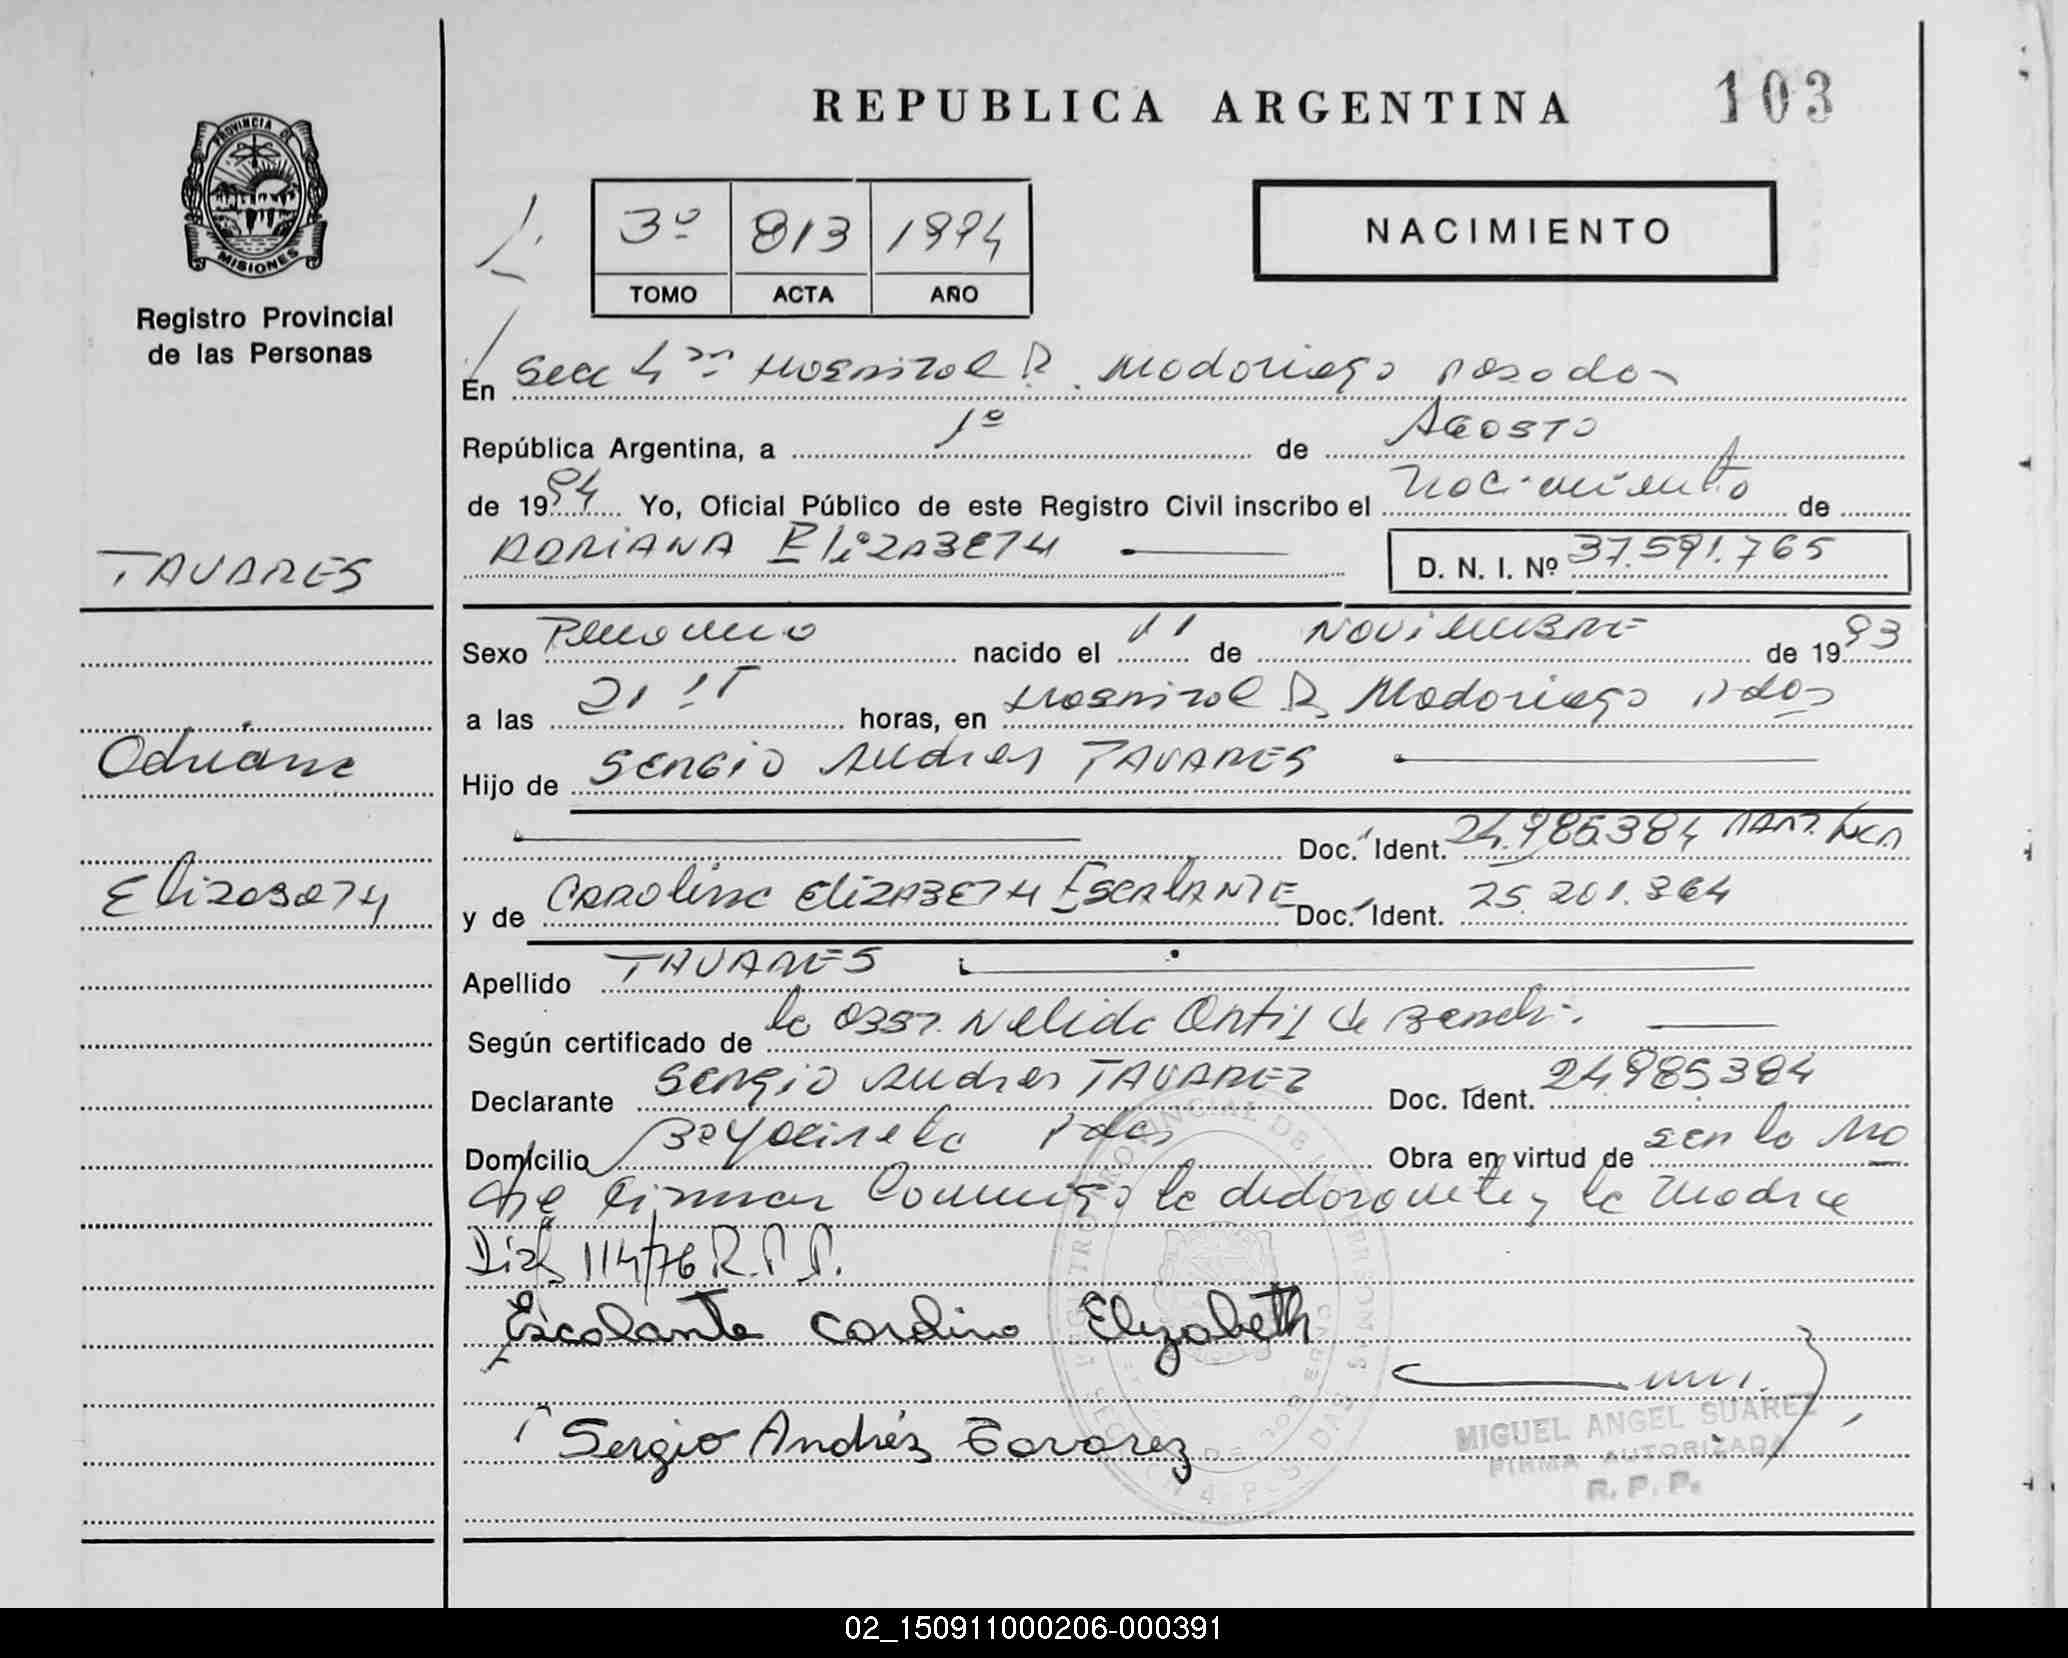 REPUBLICA ARGENTINA
103
PROVINCIA DE
MISIONES
Registro Provincial
de las Personas
3º 813 1994
TOMO ACTA AÑO
NACIMIENTO
En Secc 4ta Hospital R. Madariaga Posadas
República Argentina, a 1º de Agosto
de 1994 Yo, Oficial Público de este Registro Civil inscribo el nacimiento de
ADRIANA Elizabeth D. N. I. Nº 37.591.765
TAVARES
Sexo Femenino nacido el 11 de Noviembre de 1993
a las 21 horas, en Hospital R. Madariaga Pdas
Adriana
Hijo de Sergio Andres TAVARES
Doc. Ident. 24.985.384
Elizabeth
y de Carolina Elizabeth Escalante Doc. Ident. 25.201.364
Apellido TAVARES
Según certificado de la Obst. Nelida Ortiz de
Declarante Sergio Andres TAVAREZ Doc. Ident. 24.985.384
Domicilio Pdas Obra en virtud de ser la Ma
dre firman Conmigo la declarante y la madre
114/76 R.P.P.
Escalante Carolina Elizabeth
Sergio Andrés Tavarez
MIGUEL ANGEL SUAREZ
FIRMA AUTORIZADA
R. P. P.
02_150911000206-000391